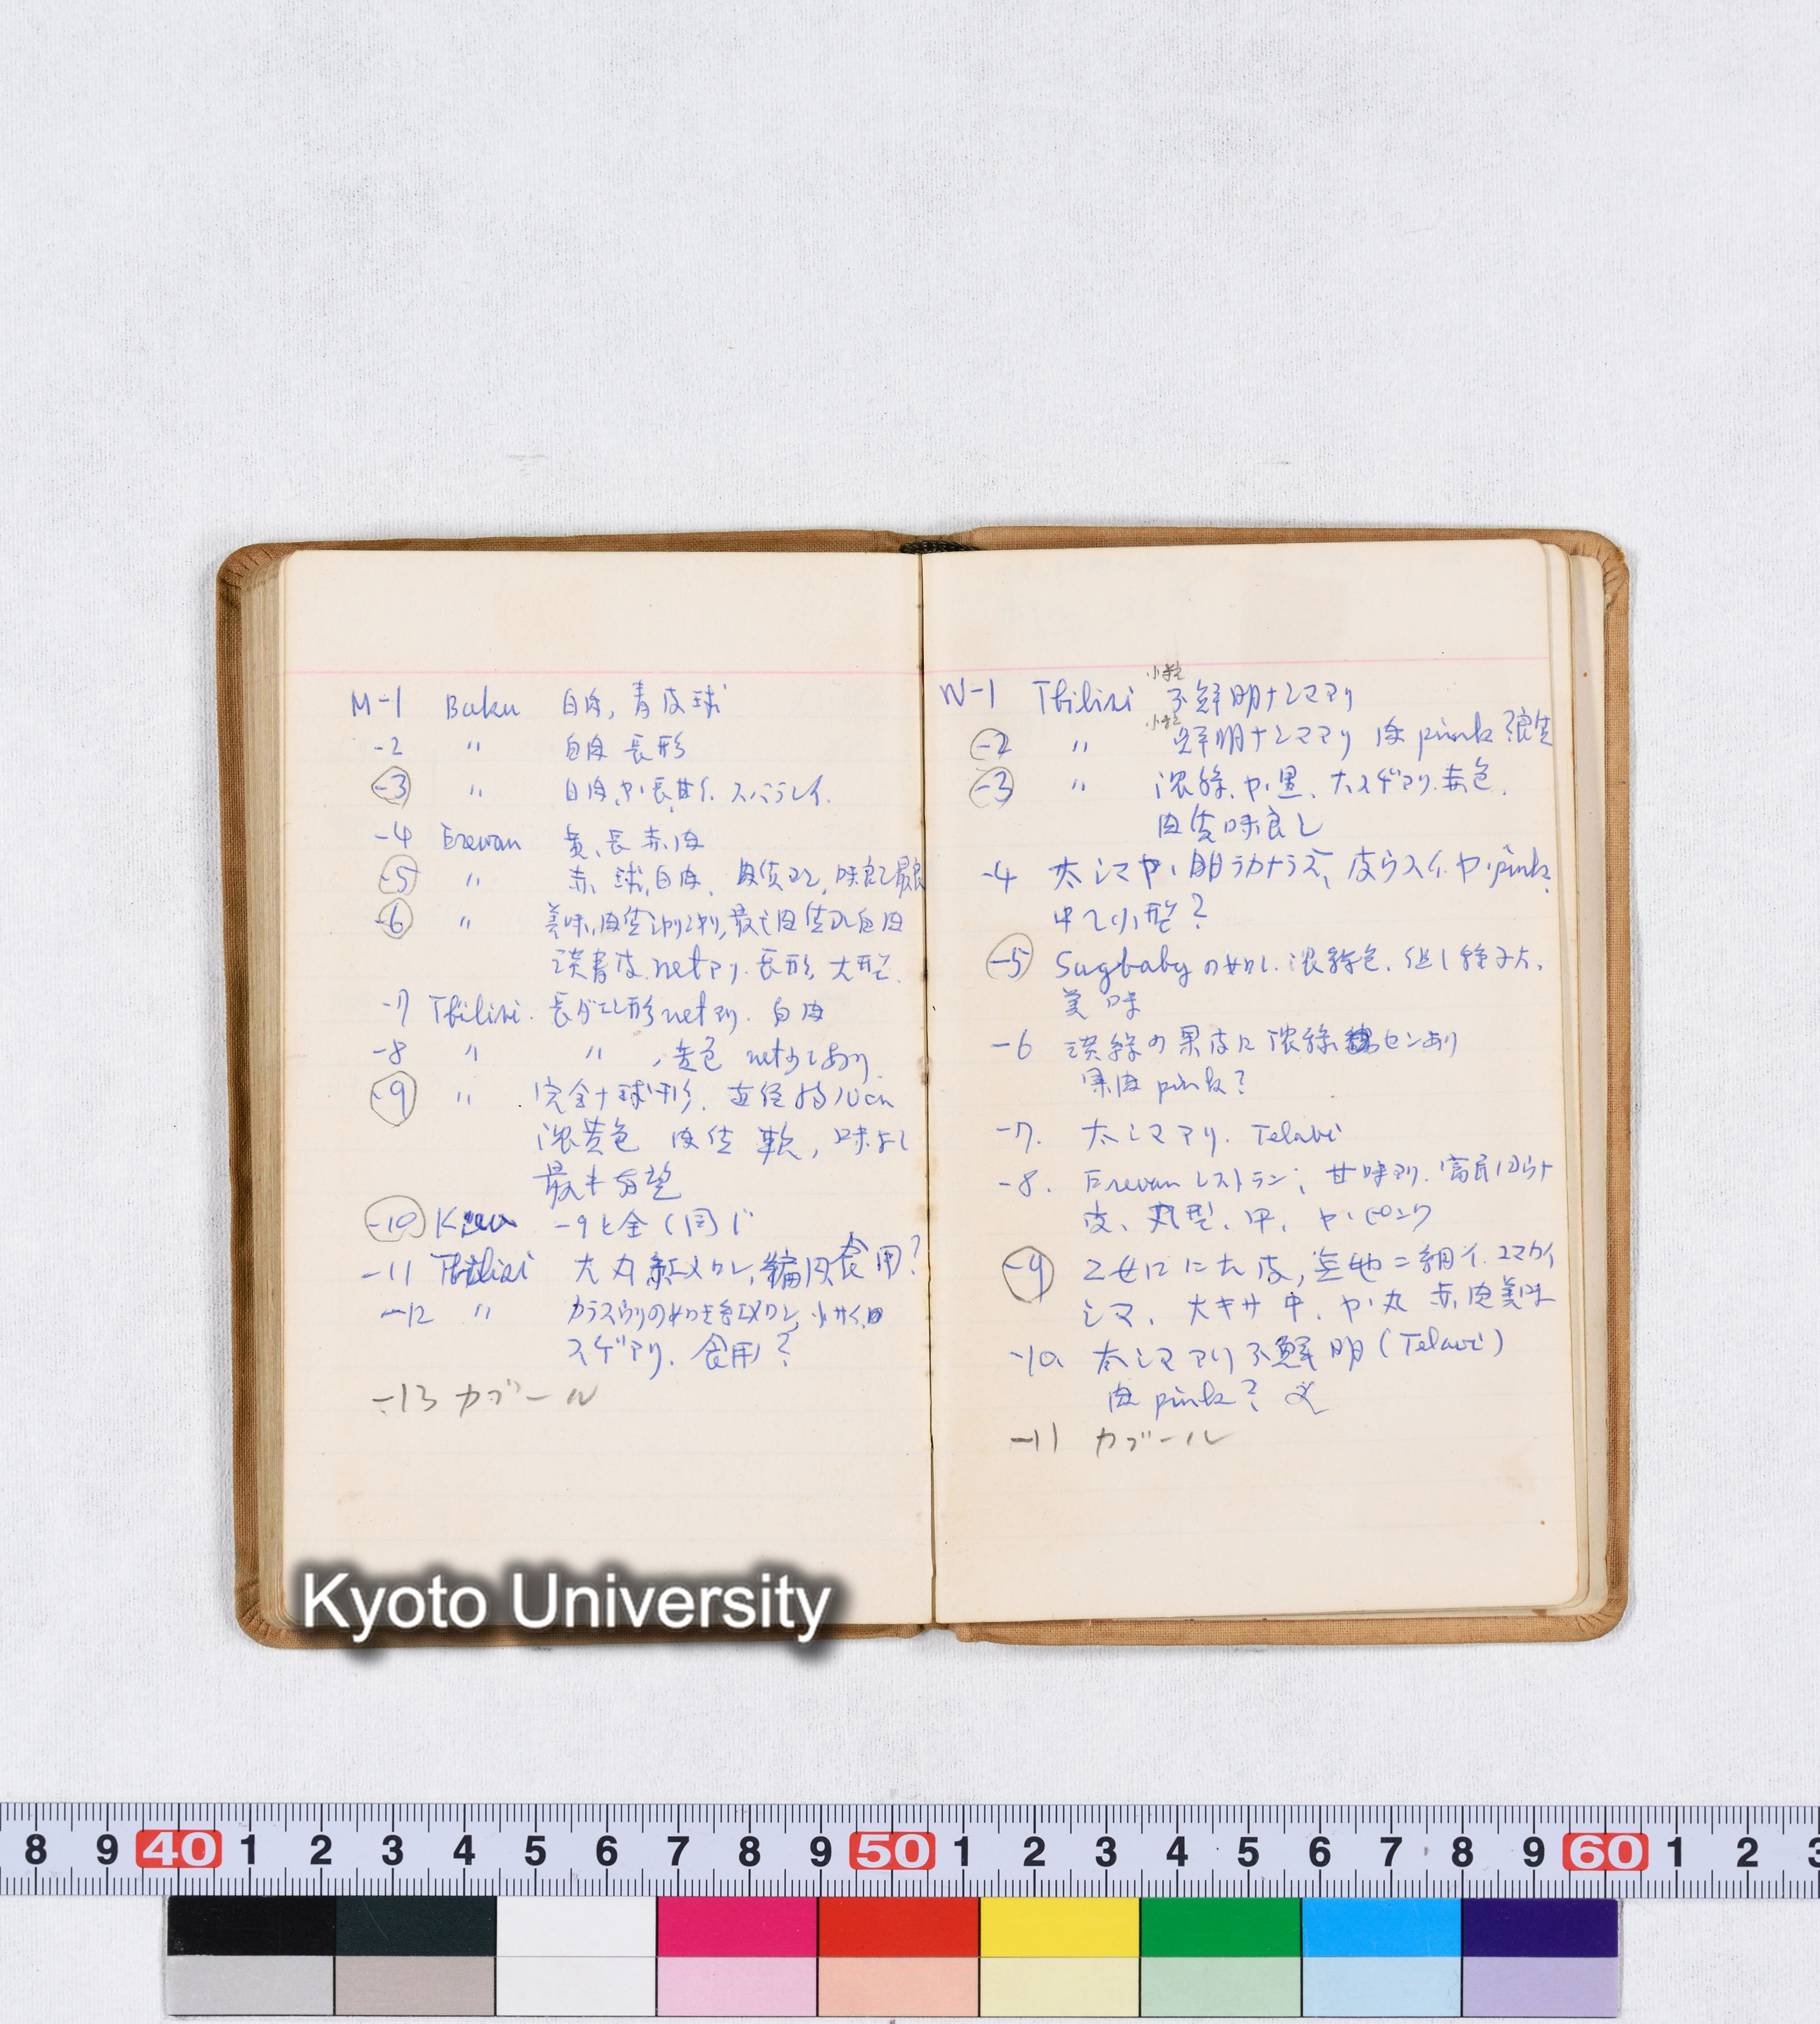 M-1 Baku 白肉, 青皮球
-2 〃 白肉 長形
-3 〃 白肉, ヤヽ長, 甘イ. スバラシイ.
-4 Erevan 黄、長 赤肉
-5 〃 赤 球, 白肉, 肉質コシ, 味良シ最良
-6 〃 美味, 肉質 最モ肉質コシ白肉
淡青皮. netアリ. 長形, 大型.
-7 Tbilisi. 長ダエン形 netアリ. 白肉
-8 〃 〃, 黄色 net少しあり.
-9 〃 完全ナ球形. 直径約10cm
濃黄色 肉質 軟, 味よし
最も有望
-10 Kiev -9と全く同じ
-11 Tbilisi 大丸 紅メロン, 食用?
-12 〃 カラスウリの如き紅メロン, 小サイ, 白
スヂアリ. 食用?
-13 カブール
W-1 Tbilisi 不鮮明ナシマアリ
小粒
-2 〃 鮮明ナシマアリ 肉 pink
小粒
-3 〃 濃緑, ヤヽ黒、大スヂアリ. 赤色.
肉質味良し
-4 太シマ ヤヽ明ラカナラズ、皮ウスイ. ヤヽpink,
中〜小型?
-5 Sugbabyの如し. 濃緑色. 但し種子大,
美味
-6 淡緑の果皮に濃緑センあり
果肉 pink?
-7. 太シマアリ. Telavi
-8. Erevan レストラン; 甘味アリ. 富民
皮、丸型、中, ヤヽピンク
-9 乙女ににた皮, 基地ニ細イ, コマカイ
シマ、大キサ中. ヤヽ丸 赤肉美味
-10. 太シマアリ 不鮮明 (Telavi)
肉 pink?
-11 カブール
Kyoto University
8 9 40 1 2 3 4 5 6 7 8 9 50 1 2 3 4 5 6 7 8 9 60 1 2 3